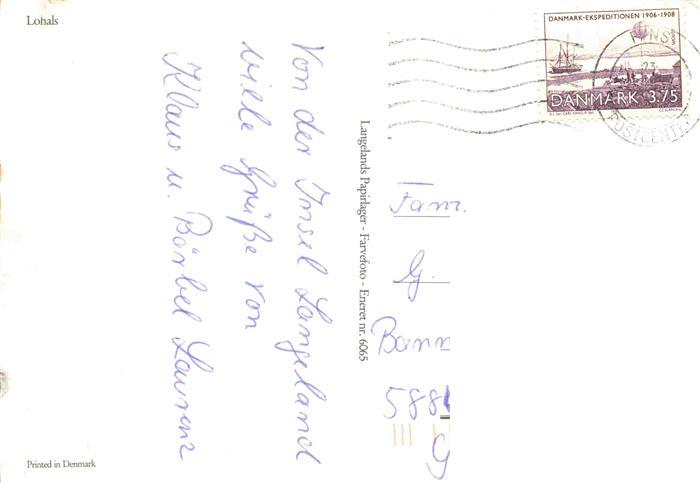 Lohals
Von der Insel Langeland
viele Grüße von
Klaus u. Bärbel Laurenz
Langelands Papirlager - Farvefoto - Eneret nr. 6065
Printed in Denmark
DANMARK-EKSPEDITIONEN 1906-1908
DANMARK 3.75
FYNS
23
POSTCENTER
Fam.
G.
Bann
588